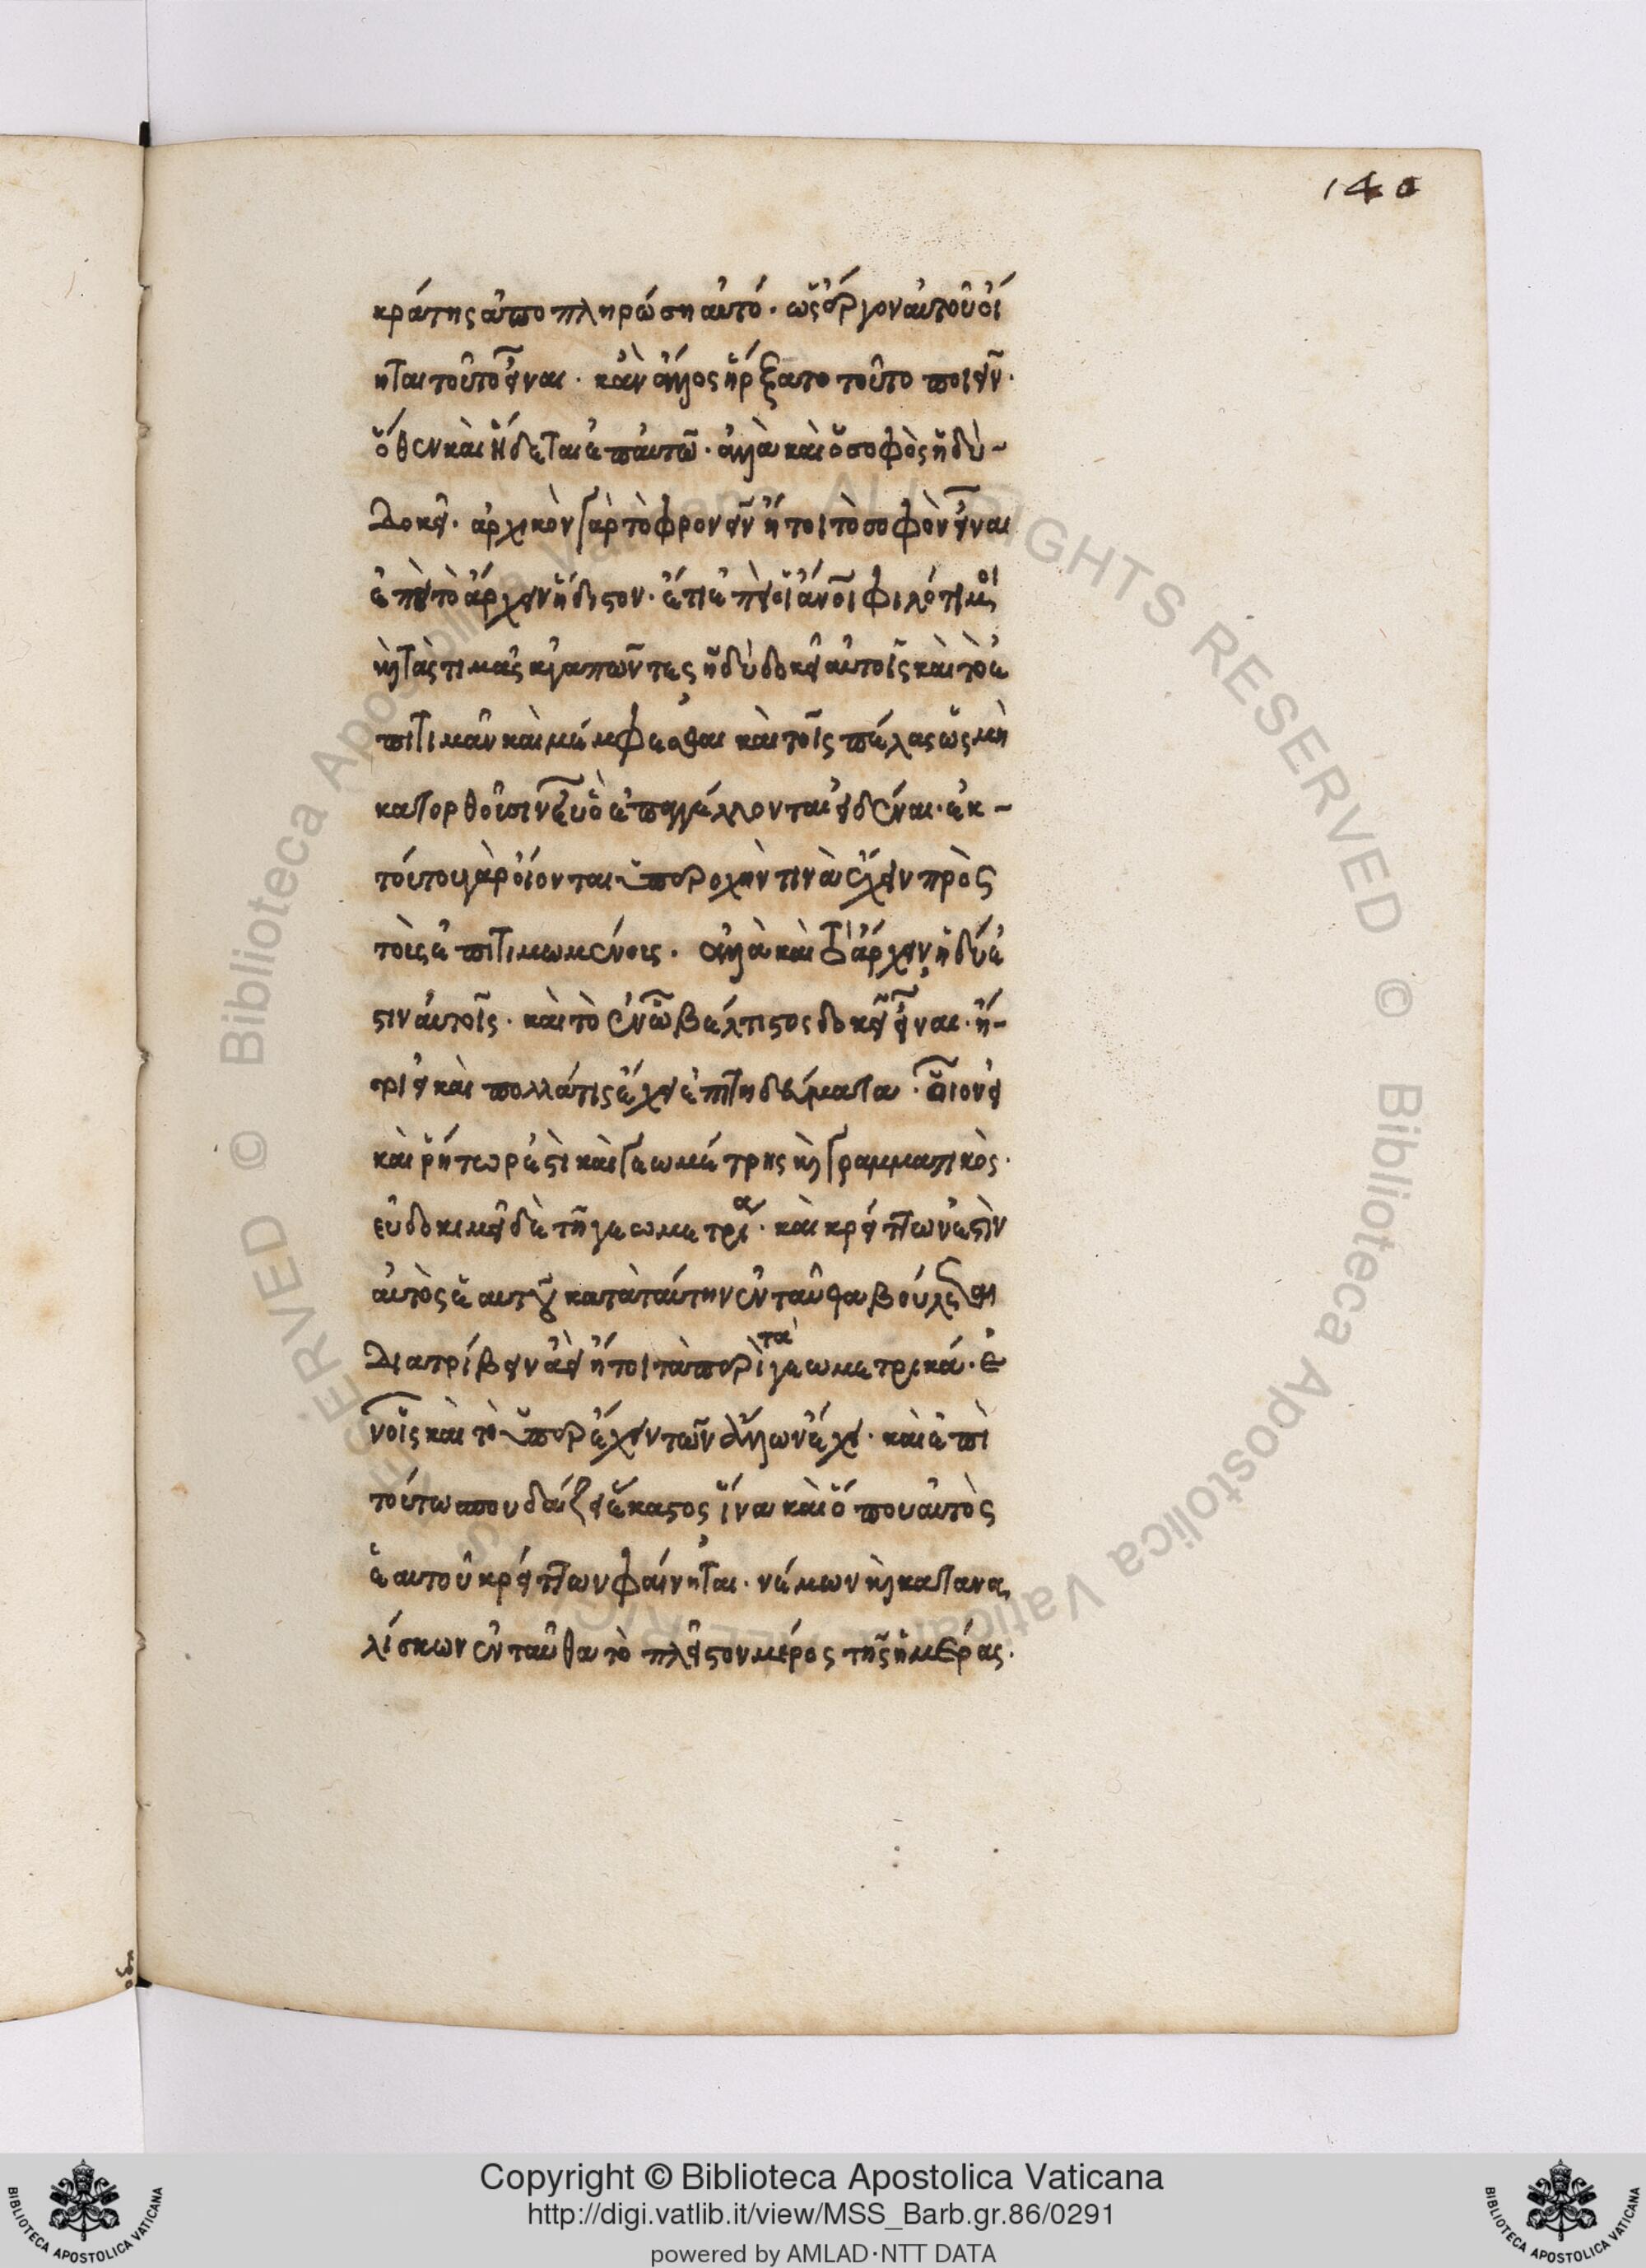 140
κράτης ἀποπληρώση αὐτό· ὡς ἔργον αὐτοῦ οἴ
ηται τοῦτο εἶναι· κἂν ἄλλος ἤρξατο τοῦτο ποιεῖν·
ὅθεν καὶ ἥδεται ἐπ αὐτῶ· ἀλλὰ καὶ ὁ σοφὸς ἡδὺ-
δοκεῖ· ἀρχικὸν γὰρ τὸ φρονεῖν ἤτοι τὸ σοφὸν εἶναι
ἐπεὶ τὸ ἄρχειν ἥδιστον· ἔτι ἐπεὶ οἱ ἄνοι φιλότιμοι
καὶ τὰς τιμὰς ἀγαπῶντες ἡδὺ δοκεῖ αὐτοῖς καὶ τὸ ἐ
πιτιμᾶν καὶ μέμφεσθαι καὶ τοῖς πέλας ὡς μὴ
κατορθοῦσιν εὖ ὃ ἐπαγγέλλονται εἰδέναι· ἐκ-
τούτου γὰρ οἴονται ὑπεροχήν τινα ἔχειν πρὸς
τοῖς ἐπιτιμωμένοις· ἀλλὰ καὶ τὸ ἄρχειν ἡδύ ἐ
στιν αὐτοῖς· καὶ τὸ ἐν ὧ βέλτιστος δοκεῖ εἶναι· ἤ-
ρει καὶ πολλά τις ἔχει ἐπιτηδεύματα· οἷον εἰ
καὶ ῥήτωρ ἐστὶ καὶ γεωμέτρης καὶ γραμματικὸς·
εὐδοκιμεῖ δὲ τῆ γεωμετρία· καὶ κρείττων ἐστὶν
αὐτὸς ἑαυτοῦ κατὰ ταύτην ἐνταῦθα βούλεται
διατρίβειν ἀεὶ ἤτοι τὰ περὶ τὰ γεωμετρικά· ἐ
ν οἷς καὶ τὸ ὑπερέχειν τῶν ἄλλων ἔχει· καὶ ἐπὶ
τούτω σπουδάζει ἕκαστος ἵνα καὶ ὅπου αὐτὸς
ἑαυτοῦ κρείττων φαίνηται· νέμων καὶ κατανα
λίσκων ἐνταῦθα τὸ πλεῖστον μέρος τῆς ἡμέρας·
Copyright © Biblioteca Apostolica Vaticana
http://digi.vatlib.it/view/MSS_Barb.gr.86/0291
powered by AMLAD·NTT DATA